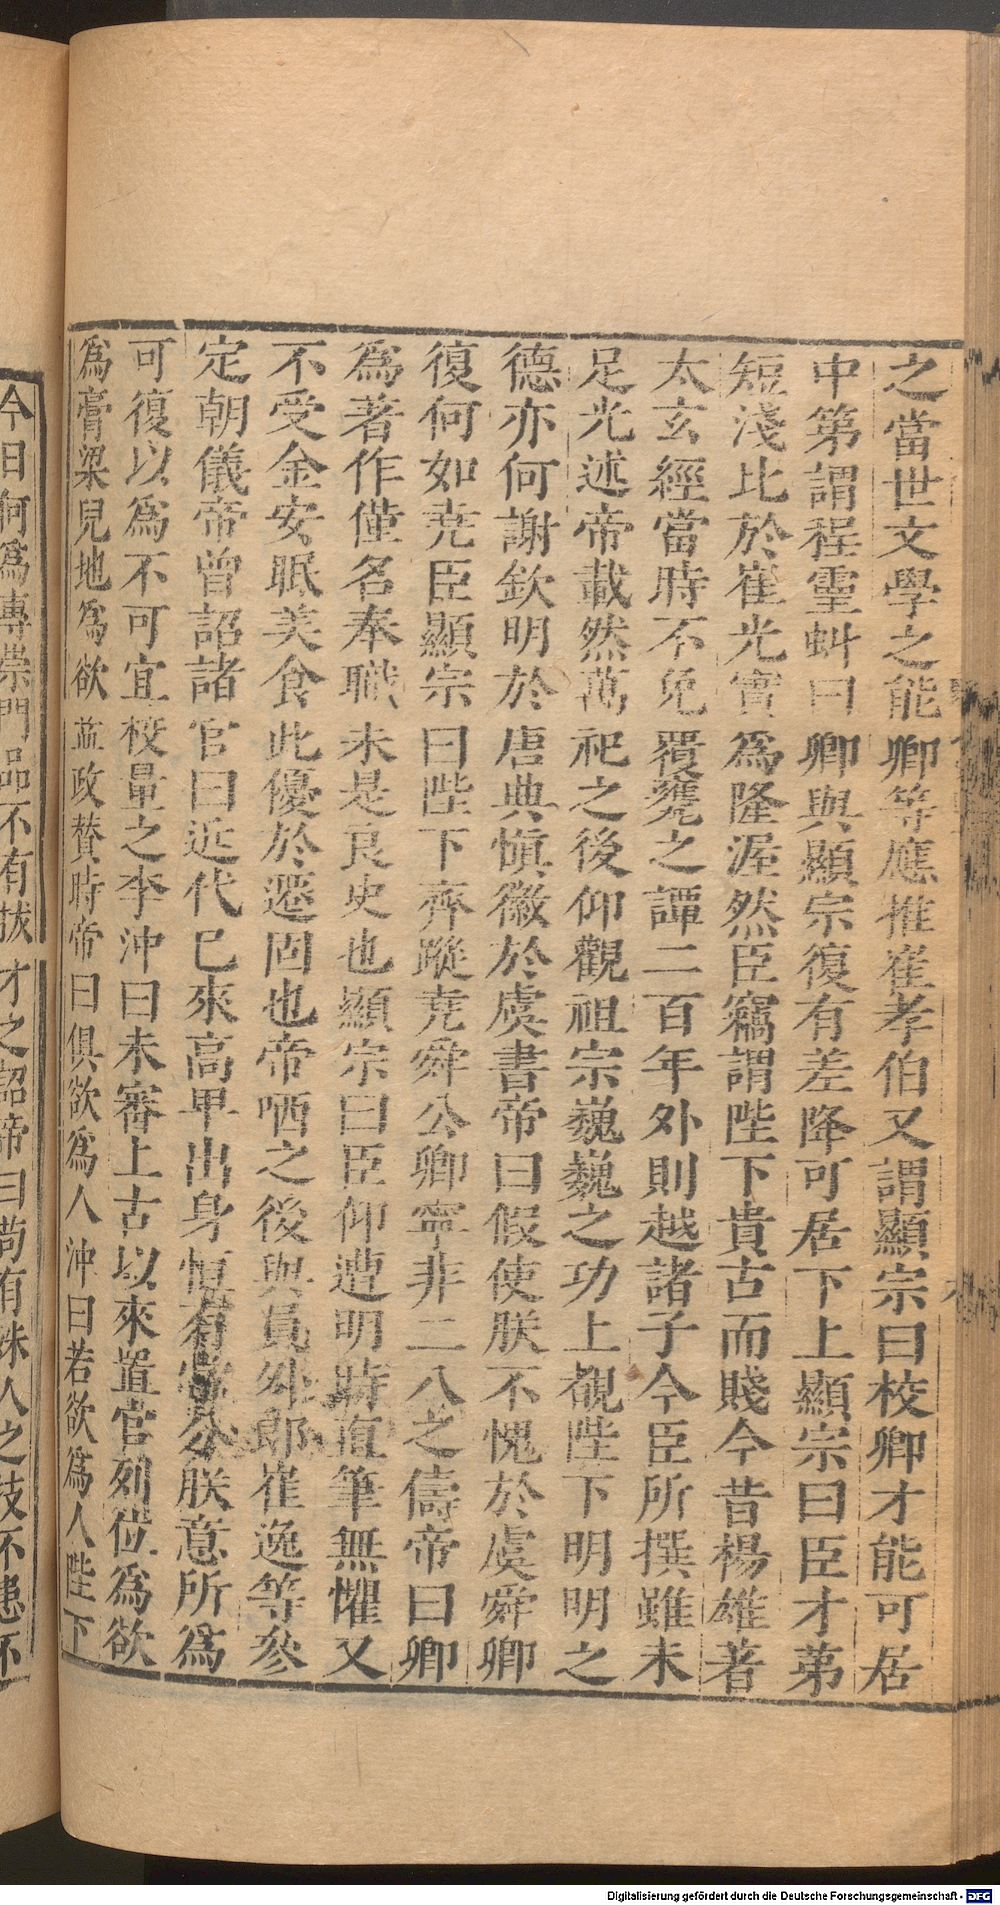 之當世文學之能卿等應推崔孝伯又謂顯宗曰校卿才能可居
中第謂程靈虯曰卿與顯宗復有差降可居下上顯宗曰臣才第
短淺比於崔光實爲隆渥然臣竊謂陛下貴古而賤今昔楊雄著
太玄經當時不免覆甕之譚二百年外則越諸子今臣所撰雖未
足光述帝載然萬祀之後仰觀祖宗巍巍之功上覩陛下明明之
德亦何謝欽明於唐典愼徽於虞書帝曰假使朕不愧於虞舜卿
復何如堯臣顯宗曰陛下齊蹤堯舜公卿寧非二八之儔帝曰卿
爲著作僅名奉職未是良史也顯宗曰臣仰遭明時直筆無懼又
不受金安眠美食此優於遷固也帝哂之後與員外郎崔逸等參
定朝儀帝曾詔諸官曰近代已來高卑出身恒有常分朕意所爲
可復以爲不可宜校量之李沖曰未審上古以來置官列位爲欲
爲膏梁兒地爲欲益政贊時帝曰俱欲爲人沖曰若欲爲人陛下
今日何爲專崇門品不有拔才之詔帝曰苟有殊人之技不患不
Digitalisierung gefördert durch die Deutsche Forschungsgemeinschaft - DFG